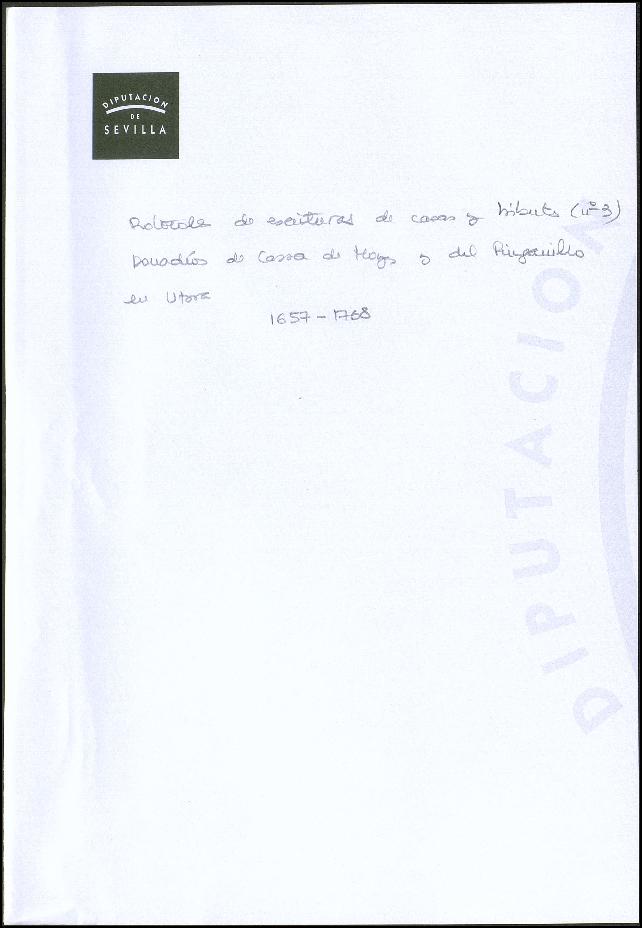 DIPUTACION
DE
SEVILLA
Protocolo de escrituras de casas y tributos (nº 3)
Donadíos de Cassa de Hoyos y del
en Utrera
1657 - 1768
DIPUTACION